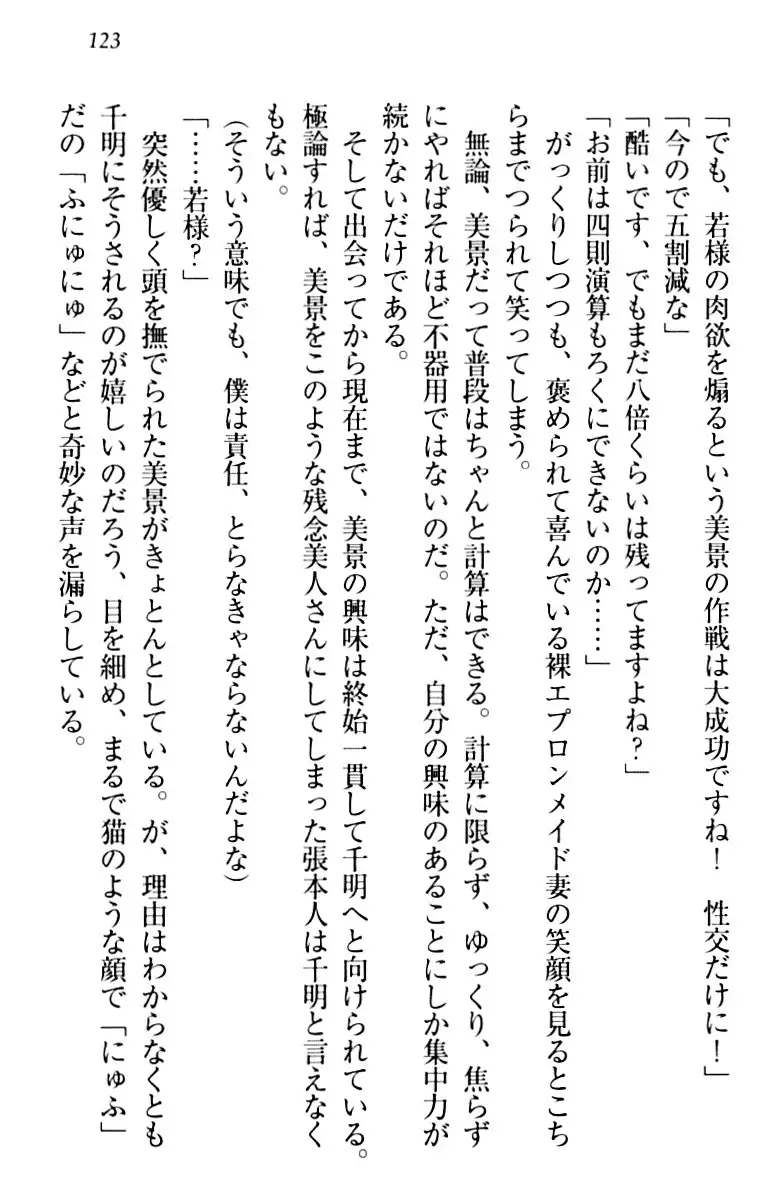 123
「でも、若様の肉欲を煽るという美景の作戦は大成功ですね！　性交だけに！」
「今ので五割減な」
「酷いです、でもまだ八倍くらいは残ってますよね？」
「お前は四則演算もろくにできないのか……」
　がっくりしつつも、褒められて喜んでいる裸エプロンメイド妻の笑顔を見るとこち
らまでつられて笑ってしまう。
　無論、美景だって普段はちゃんと計算はできる。計算に限らず、ゆっくり、焦らず
にやればそれほど不器用ではないのだ。ただ、自分の興味のあることにしか集中力が
続かないだけである。
　そして出会ってから現在まで、美景の興味は終始一貫して千明へと向けられている。
極論すれば、美景をこのような残念美人さんにしてしまった張本人は千明と言えなく
もない。
（そういう意味でも、僕は責任、とらなきゃならないんだよな）
「……若様？」
　突然優しく頭を撫でられた美景がきょとんとしている。が、理由はわからなくとも
千明にそうされるのが嬉しいのだろう、目を細め、まるで猫のような顔で「にゅふ」
だの「ふにゅにゅ」などと奇妙な声を漏らしている。